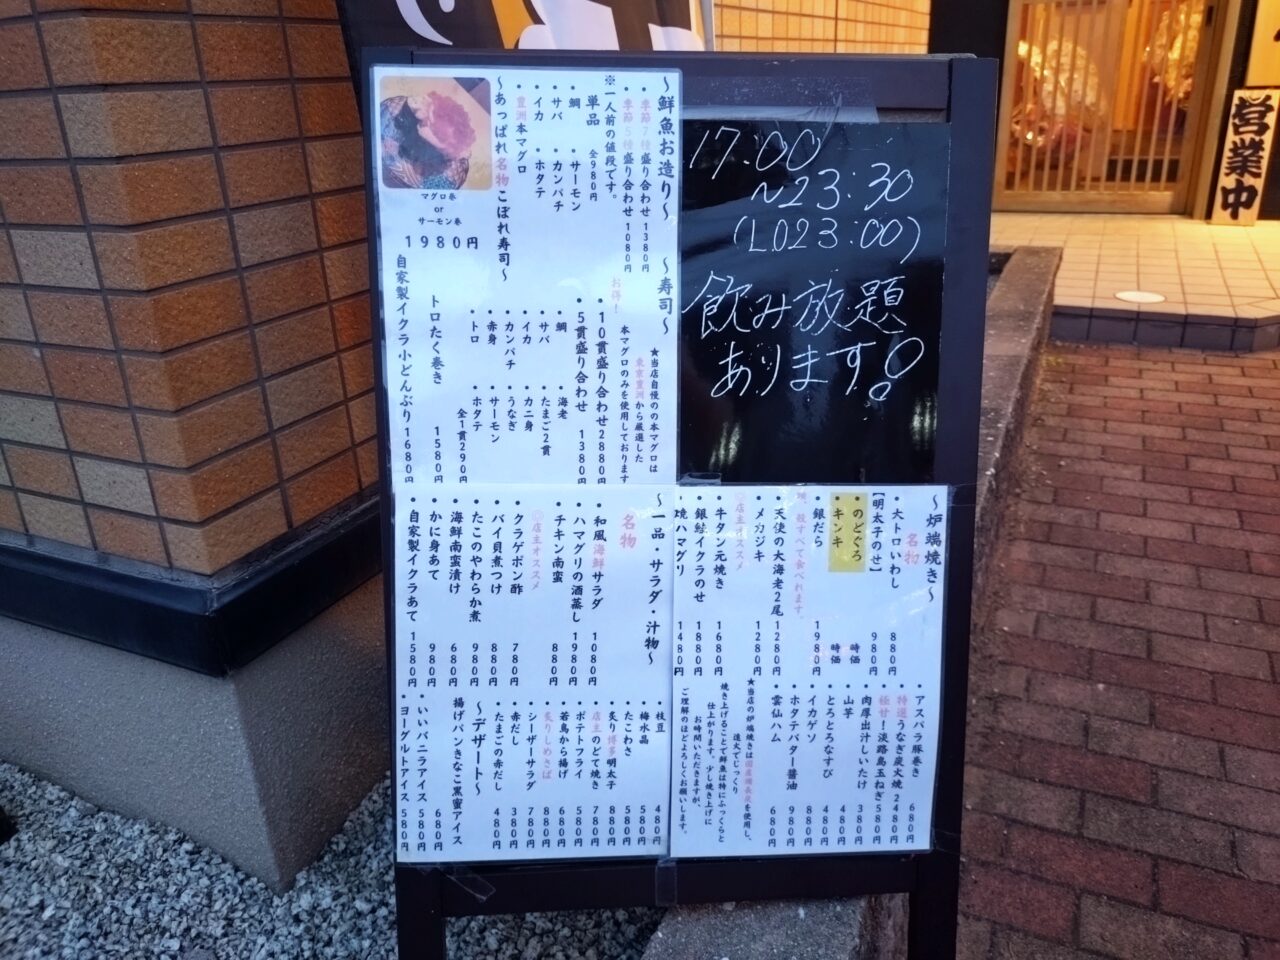 ～鮮魚お造り～
・季節7種盛り合わせ 1380円
・季節5種盛り合わせ 1080円
※一人前の値段です。
単品 全980円
・鯛 ・サーモン
・サバ ・カンパチ
・イカ ・ホタテ
・豊洲本マグロ
～あっぱれ名物こぼれ寿司～
マグロ巻
or
サーモン巻
1980円
～寿司～
★当店自慢のの本マグロは
東京豊洲から厳選した
本マグロのみを使用しております
お得!
・10貫盛り合わせ 2880円
・5貫盛り合わせ 1380円
・鯛 ・海老
・サバ ・たまご2貫
・イカ ・カニ身
・カンパチ ・うなぎ
・赤身 ・サーモン
・トロ ・ホタテ
全1貫290円
トロたく巻き 1580円
自家製イクラ小どんぶり 1680円
17:00
～23:30
(LO23:00)
飲み放題
あります!
営業中
～炉端焼き～
名物
・大トロいわし 880円
【明太子のせ】 980円
・のどぐろ 時価
・キンキ 時価
・銀だら 1980円
頭、殻すべて食べれます。
・天使の大海老2尾 1280円
・メカジキ 1280円
◎店主オススメ
・牛タン元焼き 1680円
・銀鮭イクラのせ 1880円
・焼ハマグリ 1480円
・アスパラ豚巻き 680円
・特選うなぎ炭火焼 2480円
・極甘!淡路島玉ねぎ 580円
・肉厚出汁しいたけ 380円
・山芋 480円
・とろとろなすび 480円
・イカゲソ 880円
・ホタテバター醤油 980円
・雲仙ハム 680円
★当店の炉端焼きは国産備長炭を使用し、
遠火でじっくり
焼き上げることで鮮魚は特にふっくらと
仕上がります。少し焼き上げに
お時間いただきますが、
ご理解のほどよろしくお願いします。
～一品・サラダ・汁物～
名物
・和風海鮮サラダ 1080円
・ハマグリの酒蒸し 1980円
・チキン南蛮 880円
◎店主オススメ
・クラゲポン酢 780円
・バイ貝煮つけ 880円
・たこのやわらか煮 980円
・海鮮南蛮漬け 680円
・かに身あて 980円
・自家製イクラあて 1580円
枝豆 480円
・梅水晶 580円
・たこわさ 580円
・炙り博多明太子 880円
・店主のどて焼き 780円
・ポテトフライ 580円
・若鳥から揚げ 680円
・炙りしめさば 880円
・シーザーサラダ 780円
・赤だし 380円
・たまごの赤だし 480円
～デザート～
揚げパンきなこ黒蜜アイス 680円
・いいバニラアイス 580円
・ヨーグルトアイス 580円